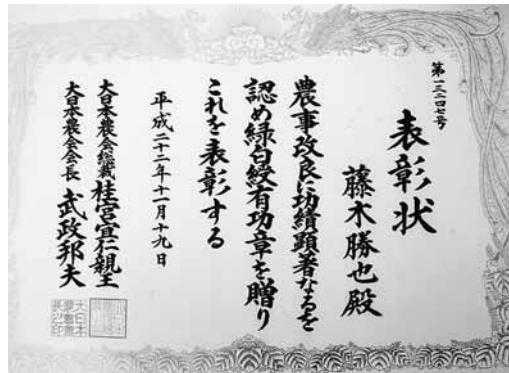 第一三二四七号
表彰状
藤木勝也殿
農事改良に功績顕著なるを
認め緑白綬有功章を贈り
これを表彰する
平成二十二年十一月十九日
大日本農会総裁 桂宮宜仁親王
大日本農会会長 武政邦夫